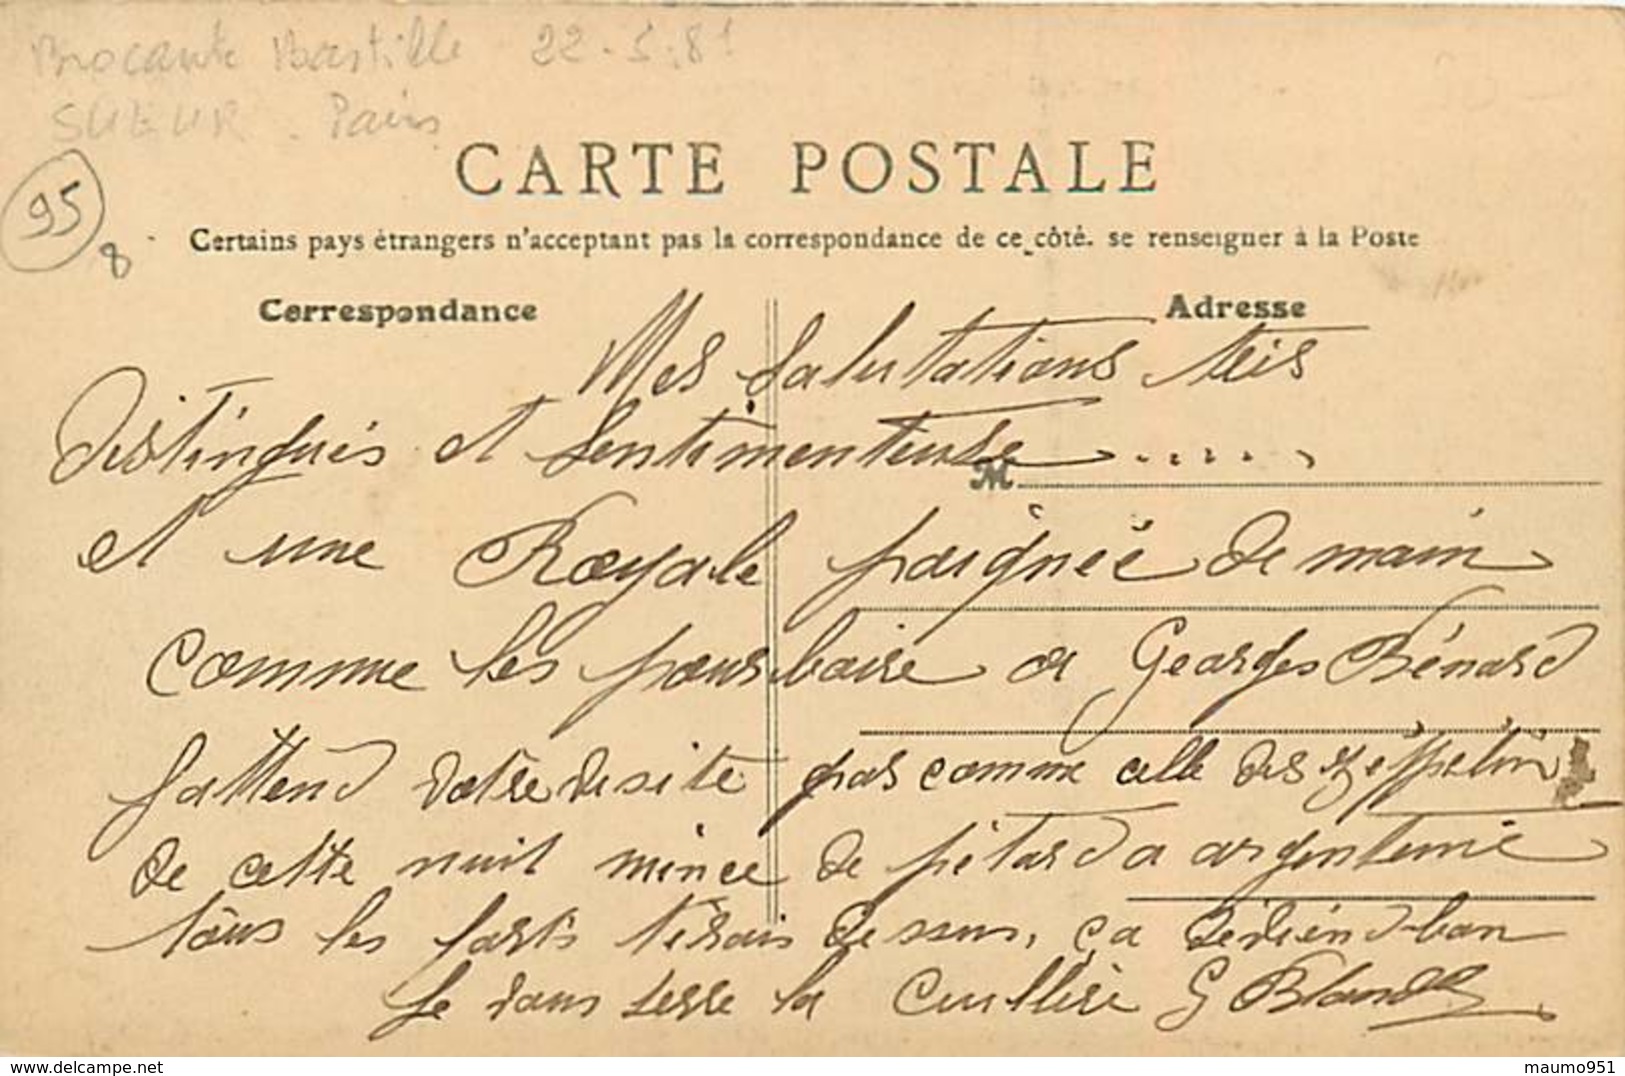 Brocante Bastille 22-5-81
SUEUR - Paris
95
8
CARTE POSTALE
Certains pays étrangers n'acceptant pas la correspondance de ce côté. se renseigner à la Poste
Correspondance
Adresse
Mes Salutations très
distingués et Sentimenteuse .....
M
et une Royale poignée de main
comme les pourboire a Georges Bénard
J'attend votre visite pas comme celle des zeppelin
de cette nuit mince de pétard a argenteuil
tous les forts tirais dessus, ça deviend bon
Je vous serre la Cuillère G Blondel
maumo951